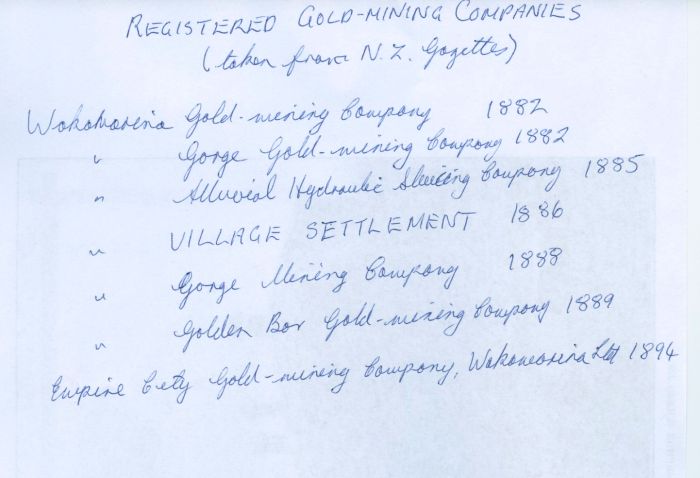 REGISTERED GOLD-MINING COMPANIES
(taken from N.Z. Gazettes)
Wakamarina Gold-mining Company 1882
" Gorge Gold-mining Company 1882
" Alluvial Hydraulic Sluicing Company 1885
" VILLAGE SETTLEMENT 1886
" Gorge Mining Company 1888
" Golden Bar Gold-mining Company 1889
Empire City Gold-mining Company, Wakamarina Ltd 1894